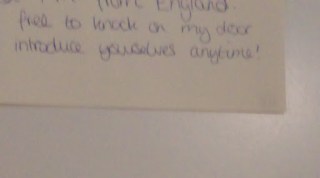 from England.
free to knock on my door
introduce yourselves anytime!